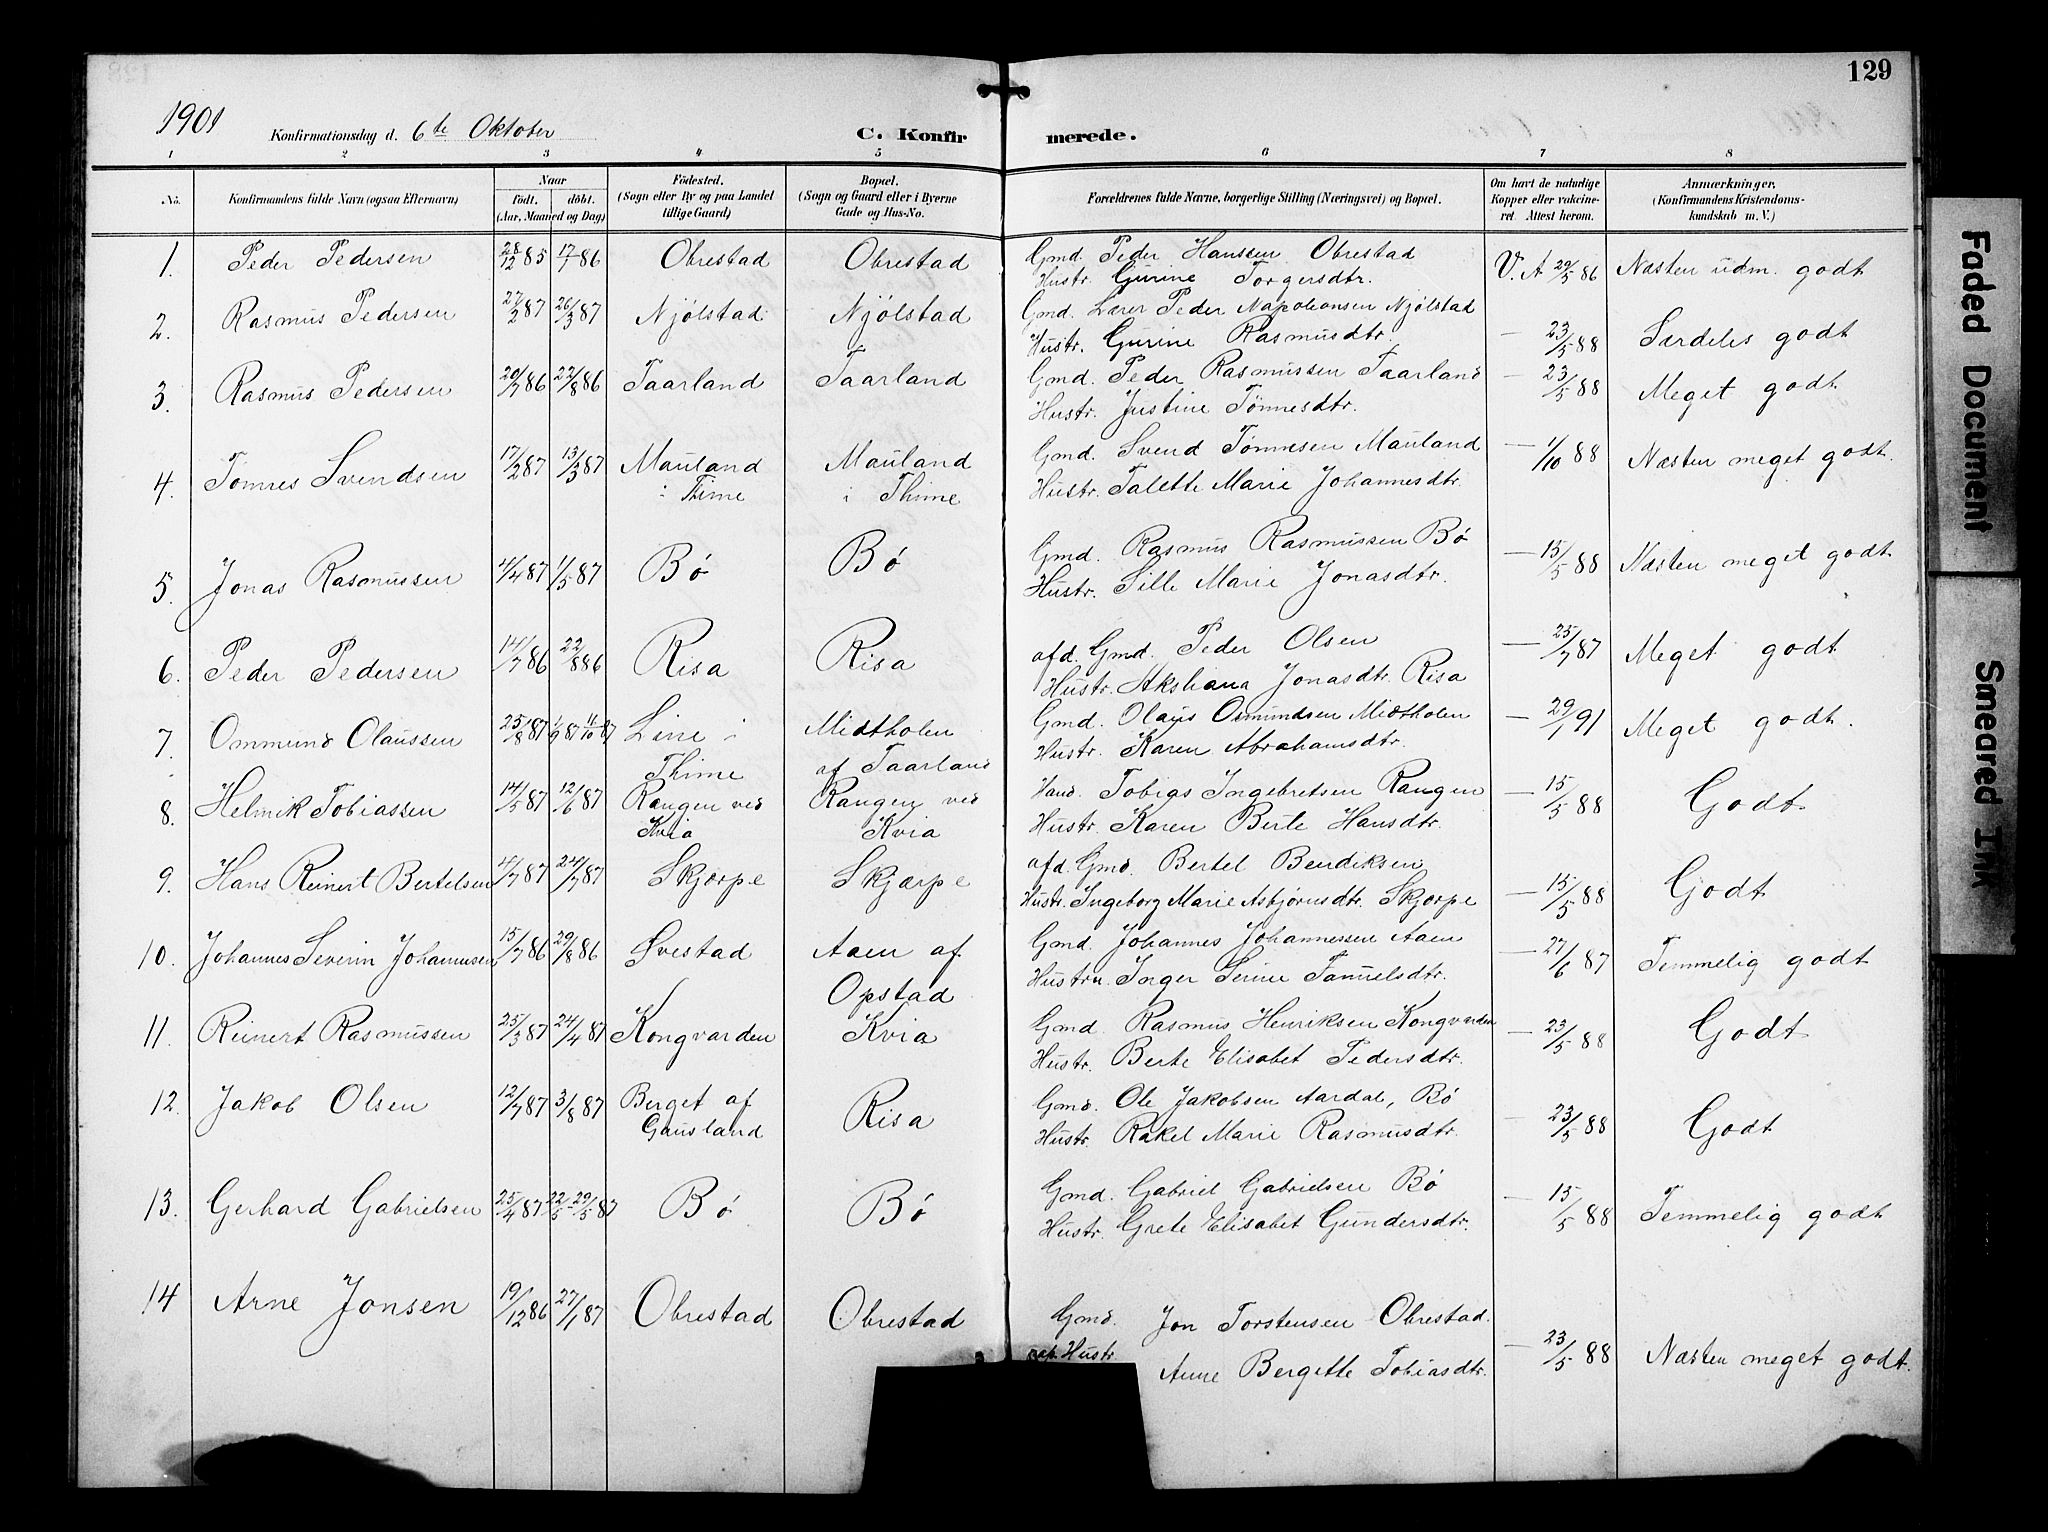 129
1901
Konfirmationsdag d. 6te Oktober
C. Konfirmerede.
1 2 3 4 5 6 7 8
No. Konfirmandens fulde Navn (ogsaa Efternavn) Naar Födt. döbt. (Aar, Maaned og Dag) Födested. (Sogn eller By og paa Landet tillige Gaard) Bopæl. (Sogn og Gaard eller i Byerne Gade og Hus-No. Forældrenes fulde Navne, borgerlige Stilling (Næringsvei) og Bopæl. Om havt de naturlige Kopper eller vakcineret. Attest herom. Anmærkninger. (Konfirmandens Kristendomskundskab m. V.)
1. Peder Pedersen 28/12 85 17/1 86 Obrestad Obrestad Gmd. Peder Hanssen Obrestad V. A 29/5 86 Næsten udm. godt
Hustr. Gurine Torgersdtr.
2. Rasmus Pedersen 27/2 87 26/3 87 Njölstad Njölstad Gmd. Lærer Peder Napoleonsen Njölstad
Hustr. Gurine Rasmusdtr. — 23/5 88 Særdeles godt
3. Rasmus Pedersen 20/7 86 22/8 86 Taarland Taarland Gmd. Peder Rasmussen Taarland — 23/5 88 Meget godt
Hustr. Justine Tönnesdtr.
4. Tönnes Svendsen 17/2 87 13/3 87 Mauland i Thime Mauland i Thime Gmd. Svend Tönnesen Mauland — 1/10 88 Næsten meget godt.
Hustr. Talette Marie Johannesdtr.
5. Jonas Rasmussen 4/4 87 1/5 87 Bö Bö Gmd. Rasmus Rasmussen Bö — 15/5 88 Næsten meget godt
Hustr. Sille Marie Jonasdtr.
6. Peder Pedersen 14/7 86 22/8 86 Risa Risa afd. Gmd. Peder Olsen — 25/7 87 Meget godt
Hustr. Jonasdtr. Risa
7. Ommund Olaussen 25/8 87 1/9 87 11/10 87 Line i Thime Midtholen af Taarland Gmd. Olaus Osmundsen Midtholen — 29/1 91 Meget godt.
Hustr. Karen Abrahamsdtr.
8. Helmik Tobiassen 14/5 87 12/6 87 Rangen ved Kvia Rangen ved Kvia Hand. Tobias Ingebretsen Rangen — 15/5 88 Godt
Hustr. Karen Berte Hansdtr.
9. Hans Reinert Bertelsen 4/7 87 24/7 87 Skjærpe Skjærpe afd. Gmd. Bertel Bendiksen
Hustr. Ingeborg Marie Asbjörnsdtr. Skjærpe — 15/5 88 Godt
10. Johannes Severin Johannesen 15/7 86 29/8 86 Svestad Aaen af Opstad Gmd. Johannes Johannessen Aaen — 27/6 87 Temmelig godt
Hustru Inger Serine Samuelsdtr.
11. Reinert Rasmussen 25/3 87 24/4 87 Kongvarden Kvia Gmd. Rasmus Henriksen Kongvarden — 23/5 88 Godt
Hustr. Berte Elisabet Pedersdtr.
12. Jakob Olsen 12/7 87 3/8 87 Berget af Gausland Risa Gmd. Ole Jakobsen Aardal, Bö — 23/5 88 Godt
Hustr. Rakel Marie Rasmusdtr.
13. Gerhard Gabrielsen 25/4 87 22/5 - 29/5 87 Bö Bö Gmd. Gabriel Gabrielsen Bö — 15/5 88 Temmelig godt
Hustr. Grete Elisabet Gundersdtr.
14 Arne Jonsen 19/12 86 27/1 87 Obrestad Obrestad Gmd. Jon Torstensen Obrestad.
Hustr. Anne Bergette Tobiasdtr. — 23/5 88 Næsten meget godt.
Faded Document
Smeared Ink